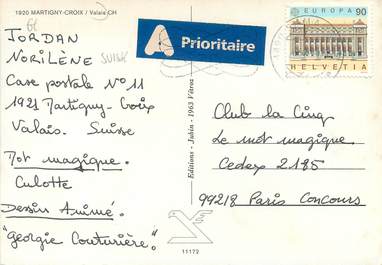 1920 MARTIGNY-CROIX / Valais CH
JORDAN
NORILÈNE
SUISSE
Case postale N° 11
1921 Martigny-Croix
Valais. Suisse
Mot magique.
Culotte
Dessin Animé.
"Georgie Couturière".
A Prioritaire
EUROPA 90
HELVETIA
Editions - Jubin - 1963 Vétroz
Club la Cinq
Le mot magique
Cedex 2185
99218 Paris Concours
11172